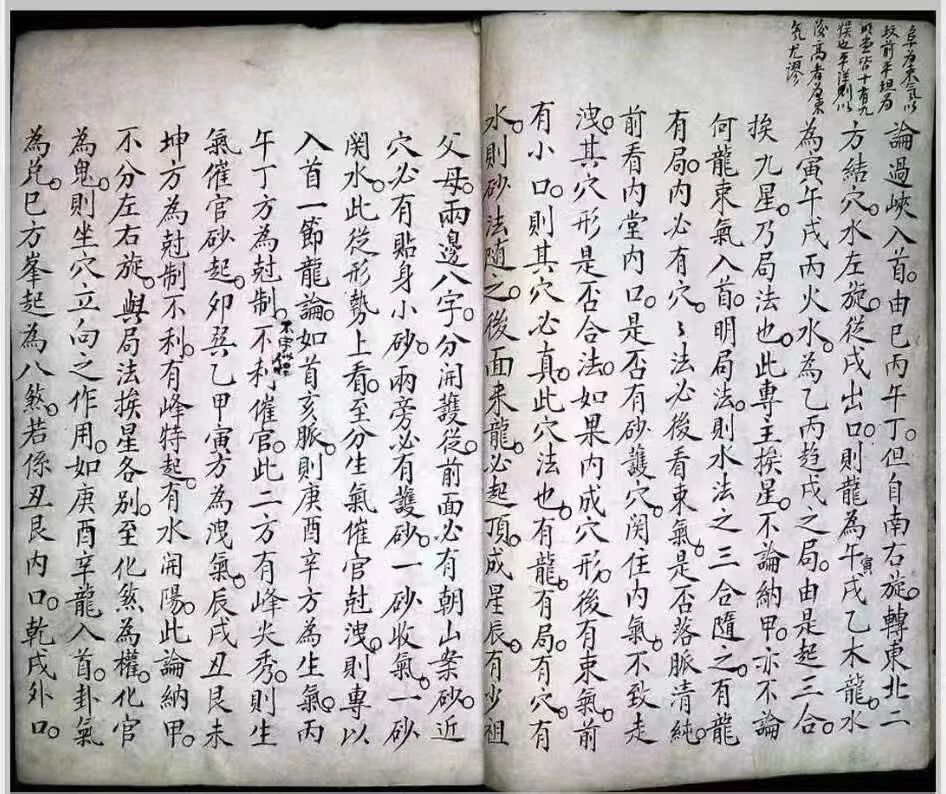 阜為束氣以
坟前平坦為
明堂皆十有九
悮也平洋則以
後高者為束
氣尤謬
論過峽入首由巳丙午丁但自南右旋轉東北二
方結穴水左旋從戌出口則龍為午寅戌乙木龍水
為寅午戌丙火水為乙丙趋戌之局由是起三合
挨九星乃局法也此專主挨星不論納甲亦不論
何龍束氣入首明局法則水法之三合隨之有龍
有局內必有穴〻法必後看束氣是否落脈清純
前看內堂內口是否有砂護穴関住內氣不致走
洩其穴形是否合法如果內成穴形後有束氣前
有小口則其穴必真此穴法也有龍有局有穴有
水則砂法隨之後面来龍必起頂成星辰有少祖
父母兩邊八字分開護從前面必有朝山案砂近
穴必有貼身小砂兩旁必有護砂一砂收氣一砂
関水此從形勢上看至分生氣催官尅洩則專以
入首一節龍論如首亥脈則庚酉辛方為生氣丙
午丁方為尅制不利催官此二方有峰尖秀則生
氣催官砂起卯巽乙甲寅方為洩氣辰戌丑艮未
坤方為尅制不利有峰特起有水開陽此論納甲
不分左右旋與局法挨星各別至化煞為權化官
為鬼則坐穴立向之作用如庚酉辛龍入首卦氣
為兌巳方峯起為八煞若係丑艮內口乾戌外口